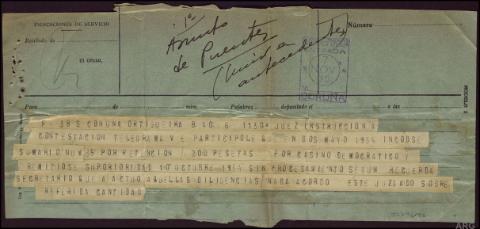 INDICACIONES DE SERVICIO
Recibido de
El OFICIAL
1º
Asunto
de Puentes
(Unir a
antecedentes)
Número
NOV
CORUÑA
Para de núm. Palabras depositado el a las
CORUÑA ORTIGUEIRA JUEZ INSTRUCCION A
CONTESTACION TELEGRAMA V E PARTICIPOLE DOS MAYO 1934 INCOOSE
SUMARIO NUM POR RETENCION 200 PESETAS POR CASINO DEMOCRATICO Y
REMITIOSE SUPERIORIDAD 10 OCTUBRE 1934 SIN PROCESAMIENTO SEGUN RECUERDA
SECRETARIO QUE ACTUO AQUELLAS DILIGENCIAS NADA ACORDO ESTE JUZGADO SOBRE
REFERIDA CANTIDAD